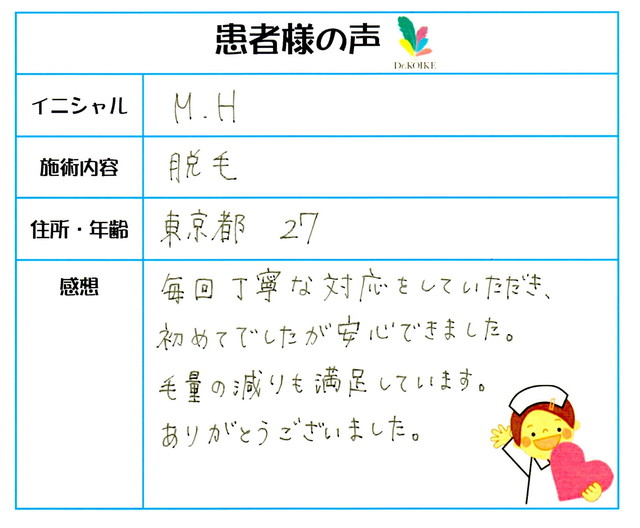 患者様の声
Dr.KOIKE
イニシャル
M.H
施術内容
脱毛
住所・年齢
東京都 27
感想
毎回丁寧な対応をしていただき、
初めてでしたが安心できました。
毛量の減りも満足しています。
ありがとうございました。